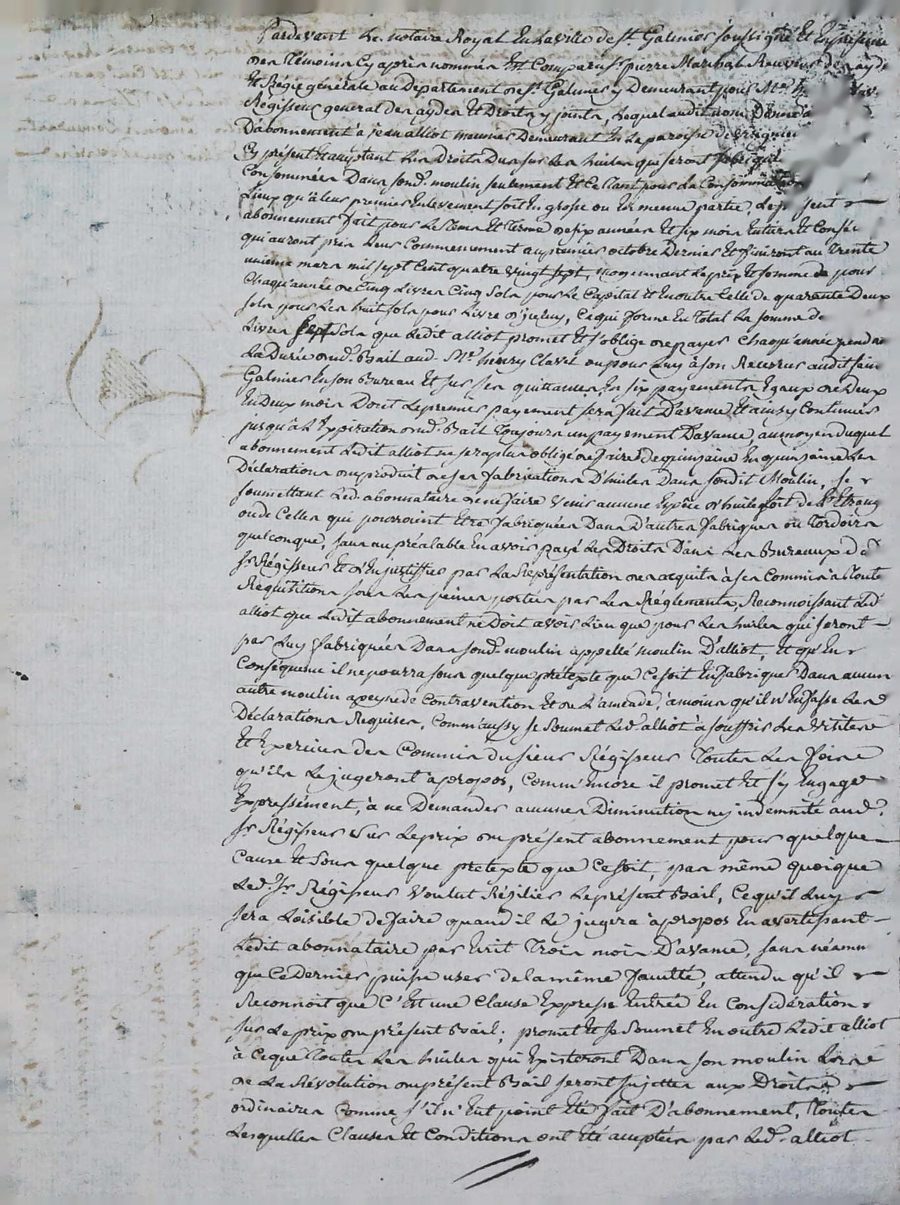 Pardevant Le notaire Royal En la ville de st. Galmier soussigné Et En presence
des témoins Cy après nommés Est Comparu sr. pierre Marchal Receveur des aydes
Et Régie générale au Departement de st. Galmier y Demeurant pour Mr.
Regisseur general des aydes Et Droits y joints, Lequel audit nom Donne à
D'abonnement à jean alliot meunier Demeurant En la paroisse de
Cy présent Et acceptant Les Droits Dus sur Les huiles qui seront fabriquées
Consommées Dans sond. moulin seulement Et ce tant pour La Consommation
Lieux qu'à leur premier Enlevement soit En grosse ou En menue partie, Le présent
abonnement fait pour Le tems Et terme de six années Et six mois Entiers Et Consé
qui auront pris Leur Commencement au premier octobre Dernier Et finiront au trente
unieme mars mil sept Cent quatre vingt sept, moyennant Le prix Et somme de pour
Chaqu'année de Cinq Livres Cinq Sols pour Le Capital Et En outre Celle de quarante Deux
sols pour Les huit sols pour Livre d'iceluy, Ce qui forme En Total La somme de
Livres sept Sols que Ledit alliot promet Et s'oblige de payer Chaqu'année pendant
La Durée dud. Bail aud. Mr. henry Clavel ou pour Luy à son Receveur audit sain
Galmier En son Bureau Et sur ses quittances En six payements Egaux de Deux
En Deux mois Dont Le premier payement sera fait D'avance, Et ainsy Continuer
jusqu'à L'Expiration dud. Bail Toujours un payement D'avance, au moyen duquel
abonnement Ledit alliot ne sera plus obligé de faire De quinzaine En quinzaine Les
Déclarations du produit de ses fabrications D'huiles Dans sondit Moulin, se
soumettant Led. abonnataire de ne faire venir aucune Espèce d'huile soit de L'Etrang
ou de Celles qui pourroient Etre fabriquées Dans D'autres fabriques ou Tordoirs
quelconque, sans au préalable En avoir payé Les Droits Dans Les Bureaux dud.
sr. Régisseur Et d'En justiffier par La Représentation des acquits à ses Commis à Toute
Réquisition sous Les peines portées par Les Réglements, Reconnoissant Led.
alliot que Ledit abonnement ne Doit avoir Lieu que pour Les huiles qui seront
par Luy fabriquées Dans sond. moulin appellé moulin D'alliot, Et qu'En
Conséquence il ne pourra sous quelque prétexte que Ce soit En fabriquer Dans aucun
autre moulin a peyne de Contravention Et de L'amende, à moins qu'il n'En fasse Les
Déclarations Requises, Comm'aussy se Soumet Led. alliot à souffrir Les visittes
Et Exercices des Commis du sieur Régisseur Toutes Les fois
qu'ils Le jugeront àpropos, Comm'Encore il promet Et s'y Engage
Expressément, à ne Demander aucunes Diminution ny indemnité aud.
sr Régisseur sur Le prix du présent abonnement pour quelque
Cause Et Sous quelque pretexte que Ce soit, pas même quoique
Led. sr. Régisseur voulut Résilier Le présent Bail, Ce qu'il Luy
sera Loisible de faire quand il Le jugera àpropos En avertissant
Ledit abonnataire par Ecrit Trois mois D'avance, sans néanm
que Ce Dernier puisse user de la même faculté, attendu qu'il
Reconnoit que C'Est une Clause Expresse Entrée En Considération
sur Le prix du présent Bail; promet Et se Soumet En outre Ledit alliot
à Ce que Toutes Les huiles qui Existeront Dans son moulin Lors
de La Révolution du présent Bail seront sujettes aux Droits
ordinaires Comme s'il n'Eut point Eté fait D'abonnement, Toutes
Lesquelles Clauses Et Conditions ont été acceptées par Led. alliot